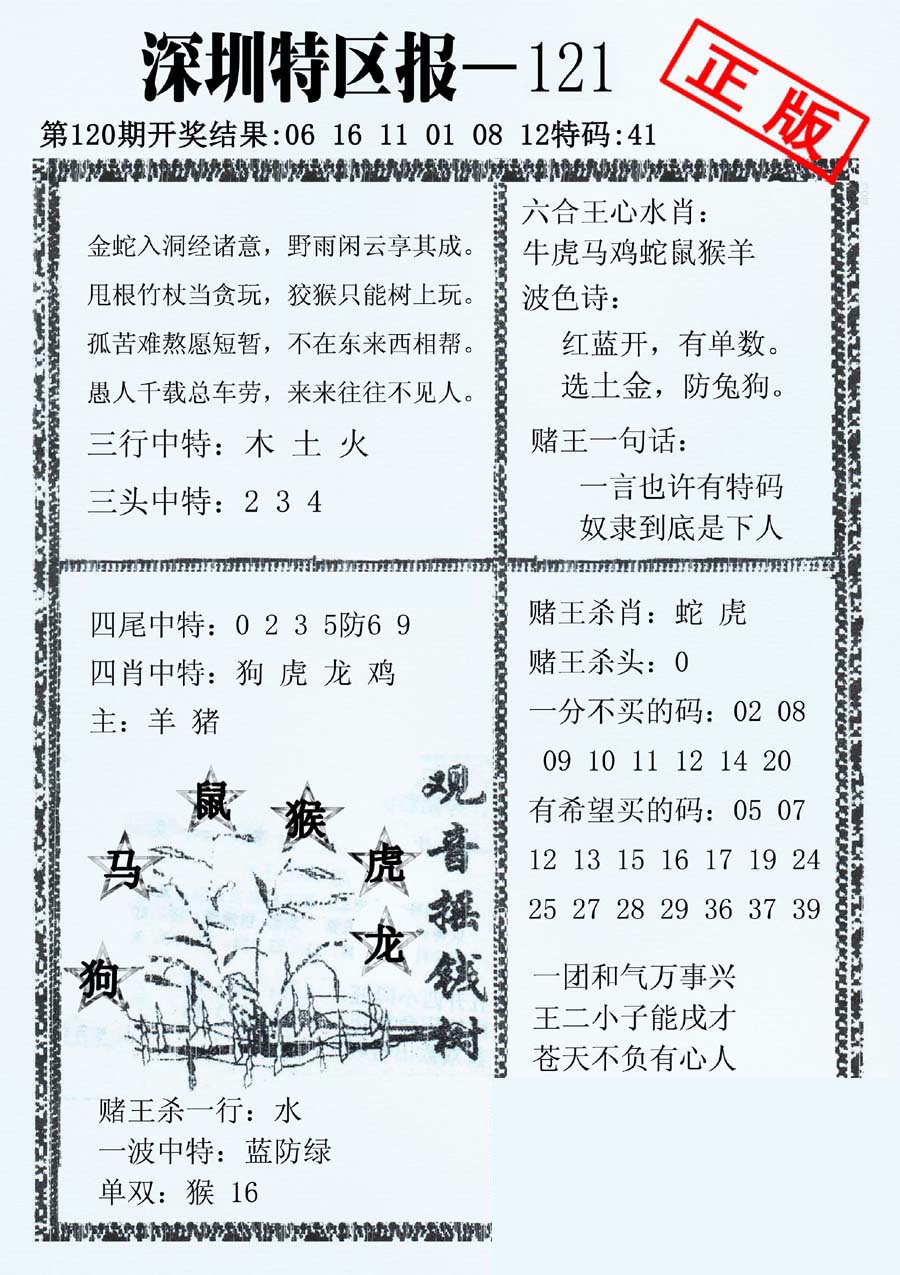 深圳特区报—121
正版
第120期开奖结果:06 16 11 01 08 12特码:41
金蛇入洞经诸意，野雨闲云享其成。
甩根竹杖当贪玩，狡猴只能树上玩。
孤苦难熬愿短暂，不在东来西相帮。
愚人千载总车劳，来来往往不见人。
三行中特：木 土 火
三头中特：2 3 4
六合王心水肖：
牛虎马鸡蛇鼠猴羊
波色诗：
红蓝开，有单数。
选土金，防兔狗。
赌王一句话：
一言也许有特码
奴隶到底是下人
四尾中特：0 2 3 5防6 9
四肖中特：狗 虎 龙 鸡
主：羊 猪
鼠
猴
马
虎
龙
狗
观音摇钱树
赌王杀一行：水
一波中特：蓝防绿
单双：猴 16
赌王杀肖：蛇 虎
赌王杀头：0
一分不买的码：02 08
09 10 11 12 14 20
有希望买的码：05 07
12 13 15 16 17 19 24
25 27 28 29 36 37 39
一团和气万事兴
王二小子能戌才
苍天不负有心人